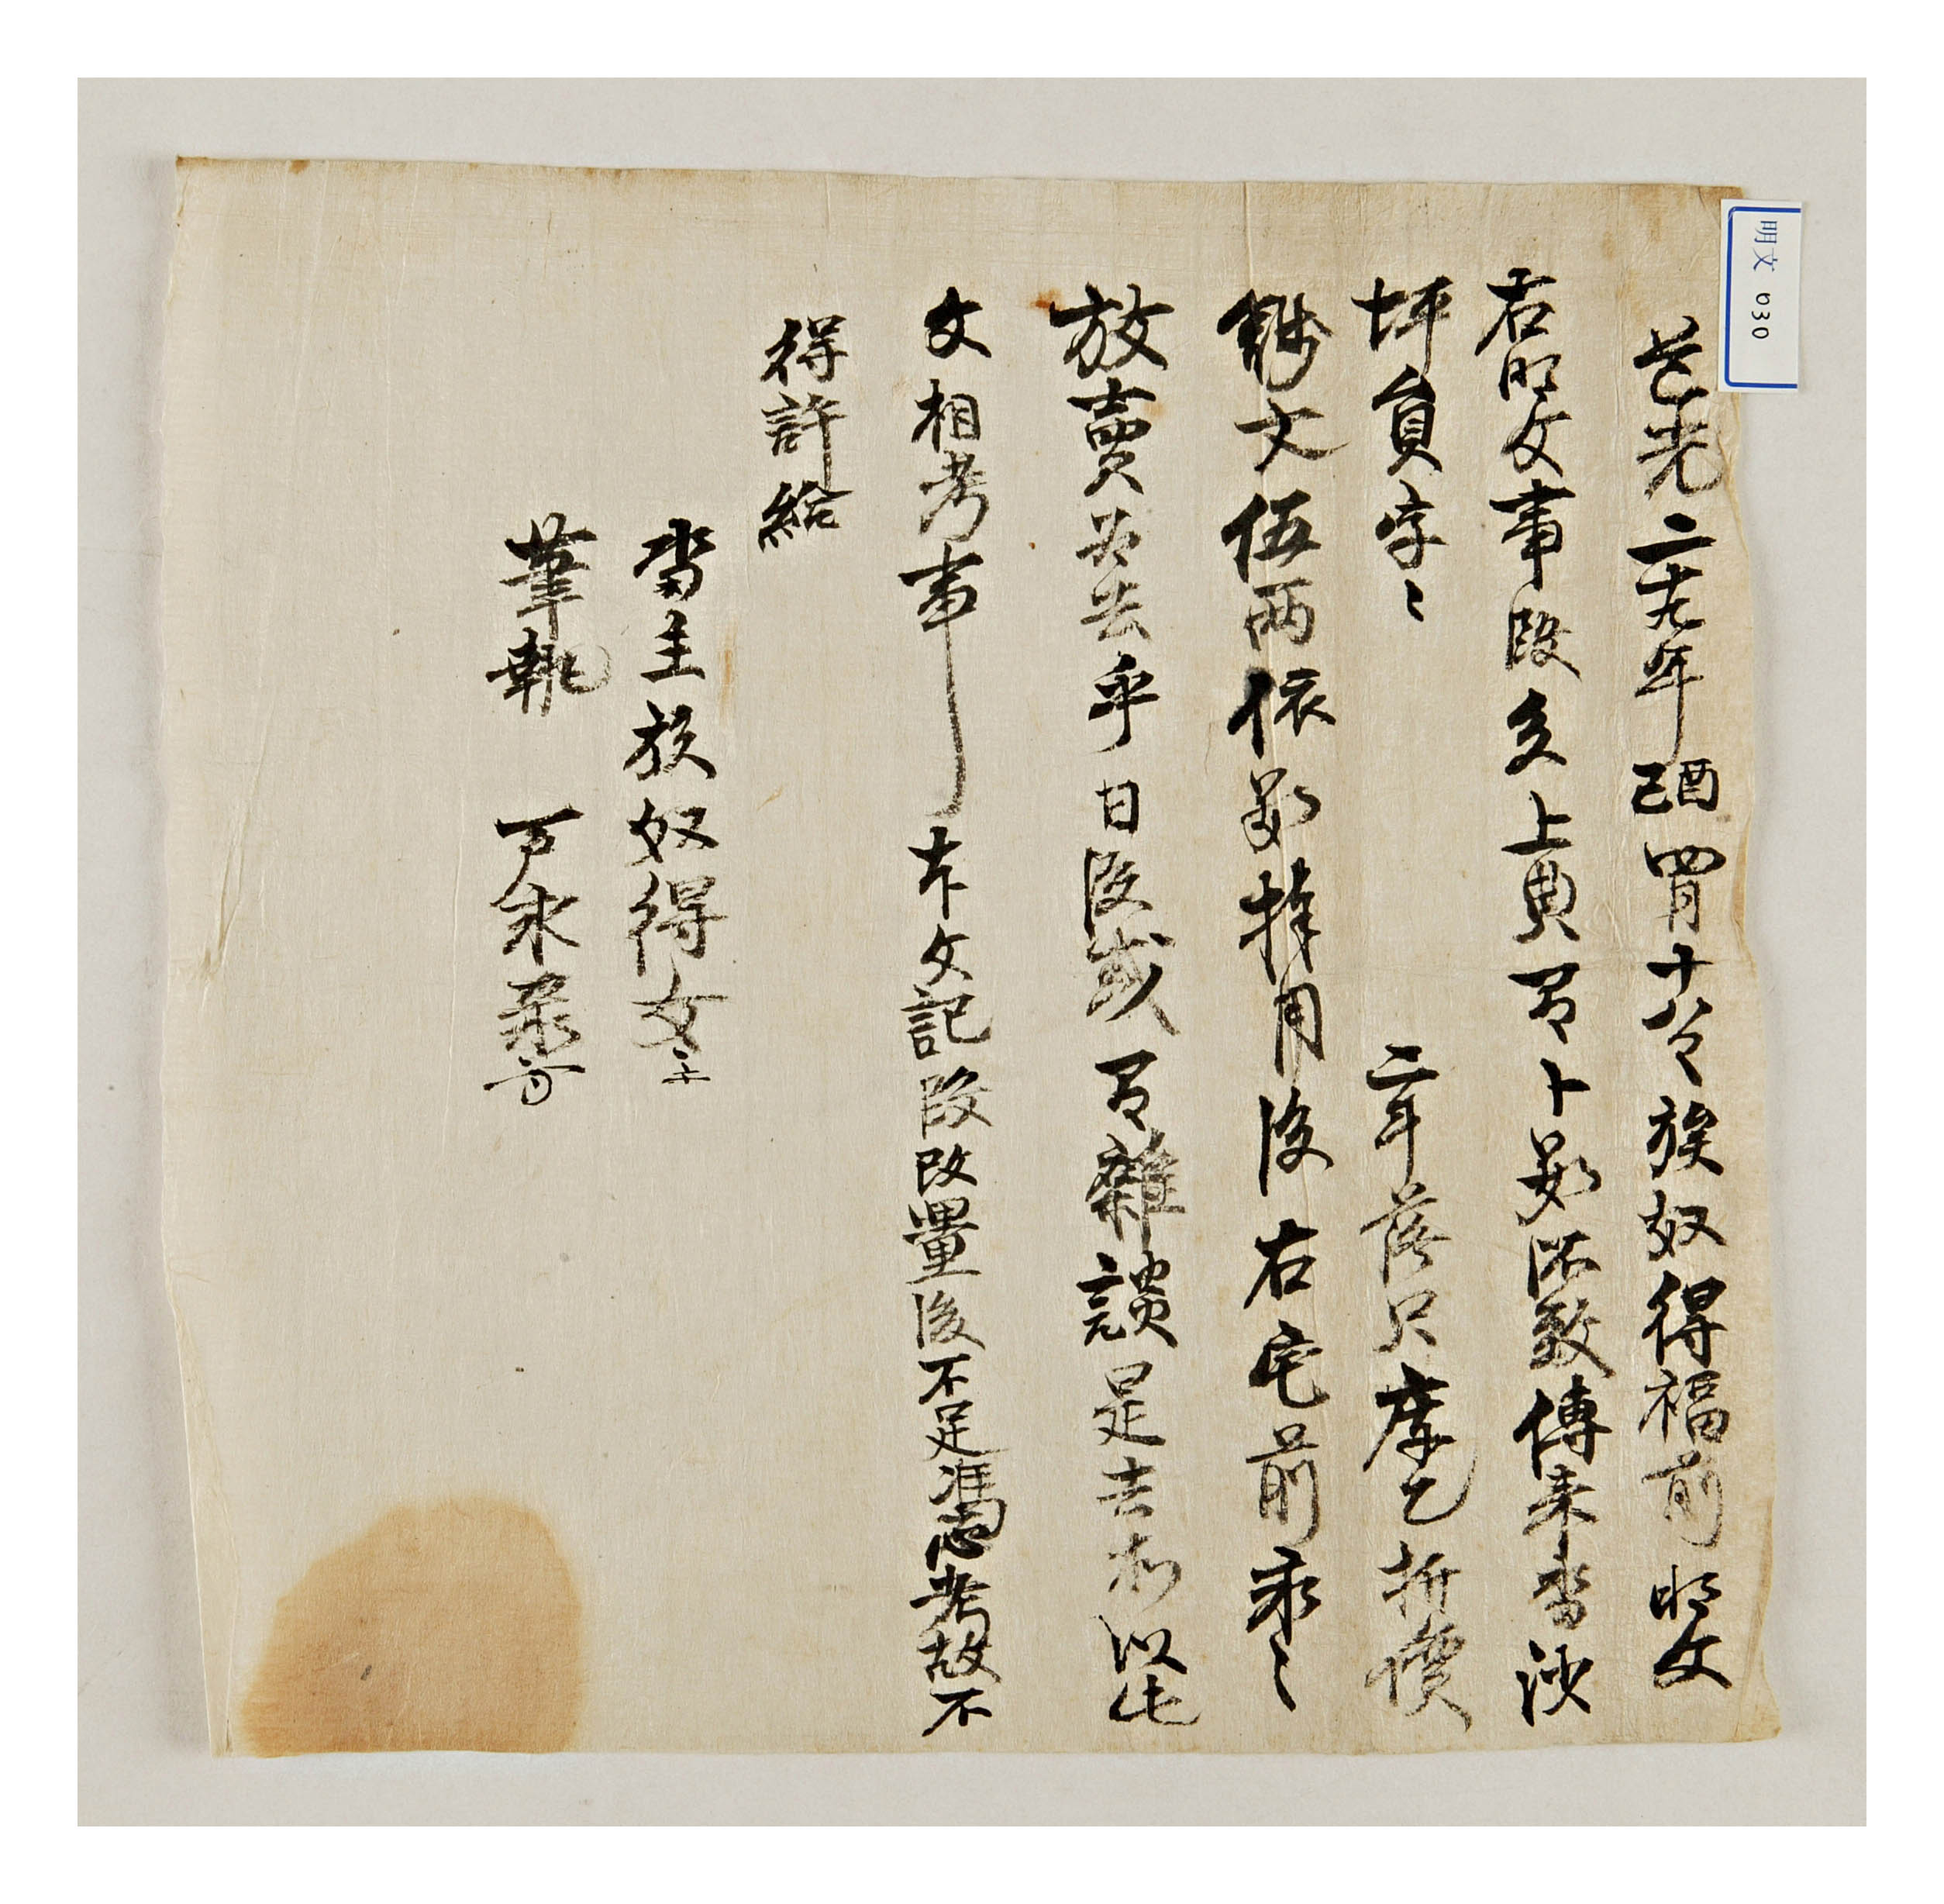 明文 030
道光二十九年己酉四月十八日族奴得福前明文
右明文事段矣上典买卜数處數傳来畓沙
坪員字〻 二斗落只庫乙折價
錢文伍兩依数捧用後右宅前永〻
放賣為去乎日後或有雜談是去等以此
文相考事 本文記段改量後不足憑考故不
得許給
畓主族奴得女
筆執 尹永